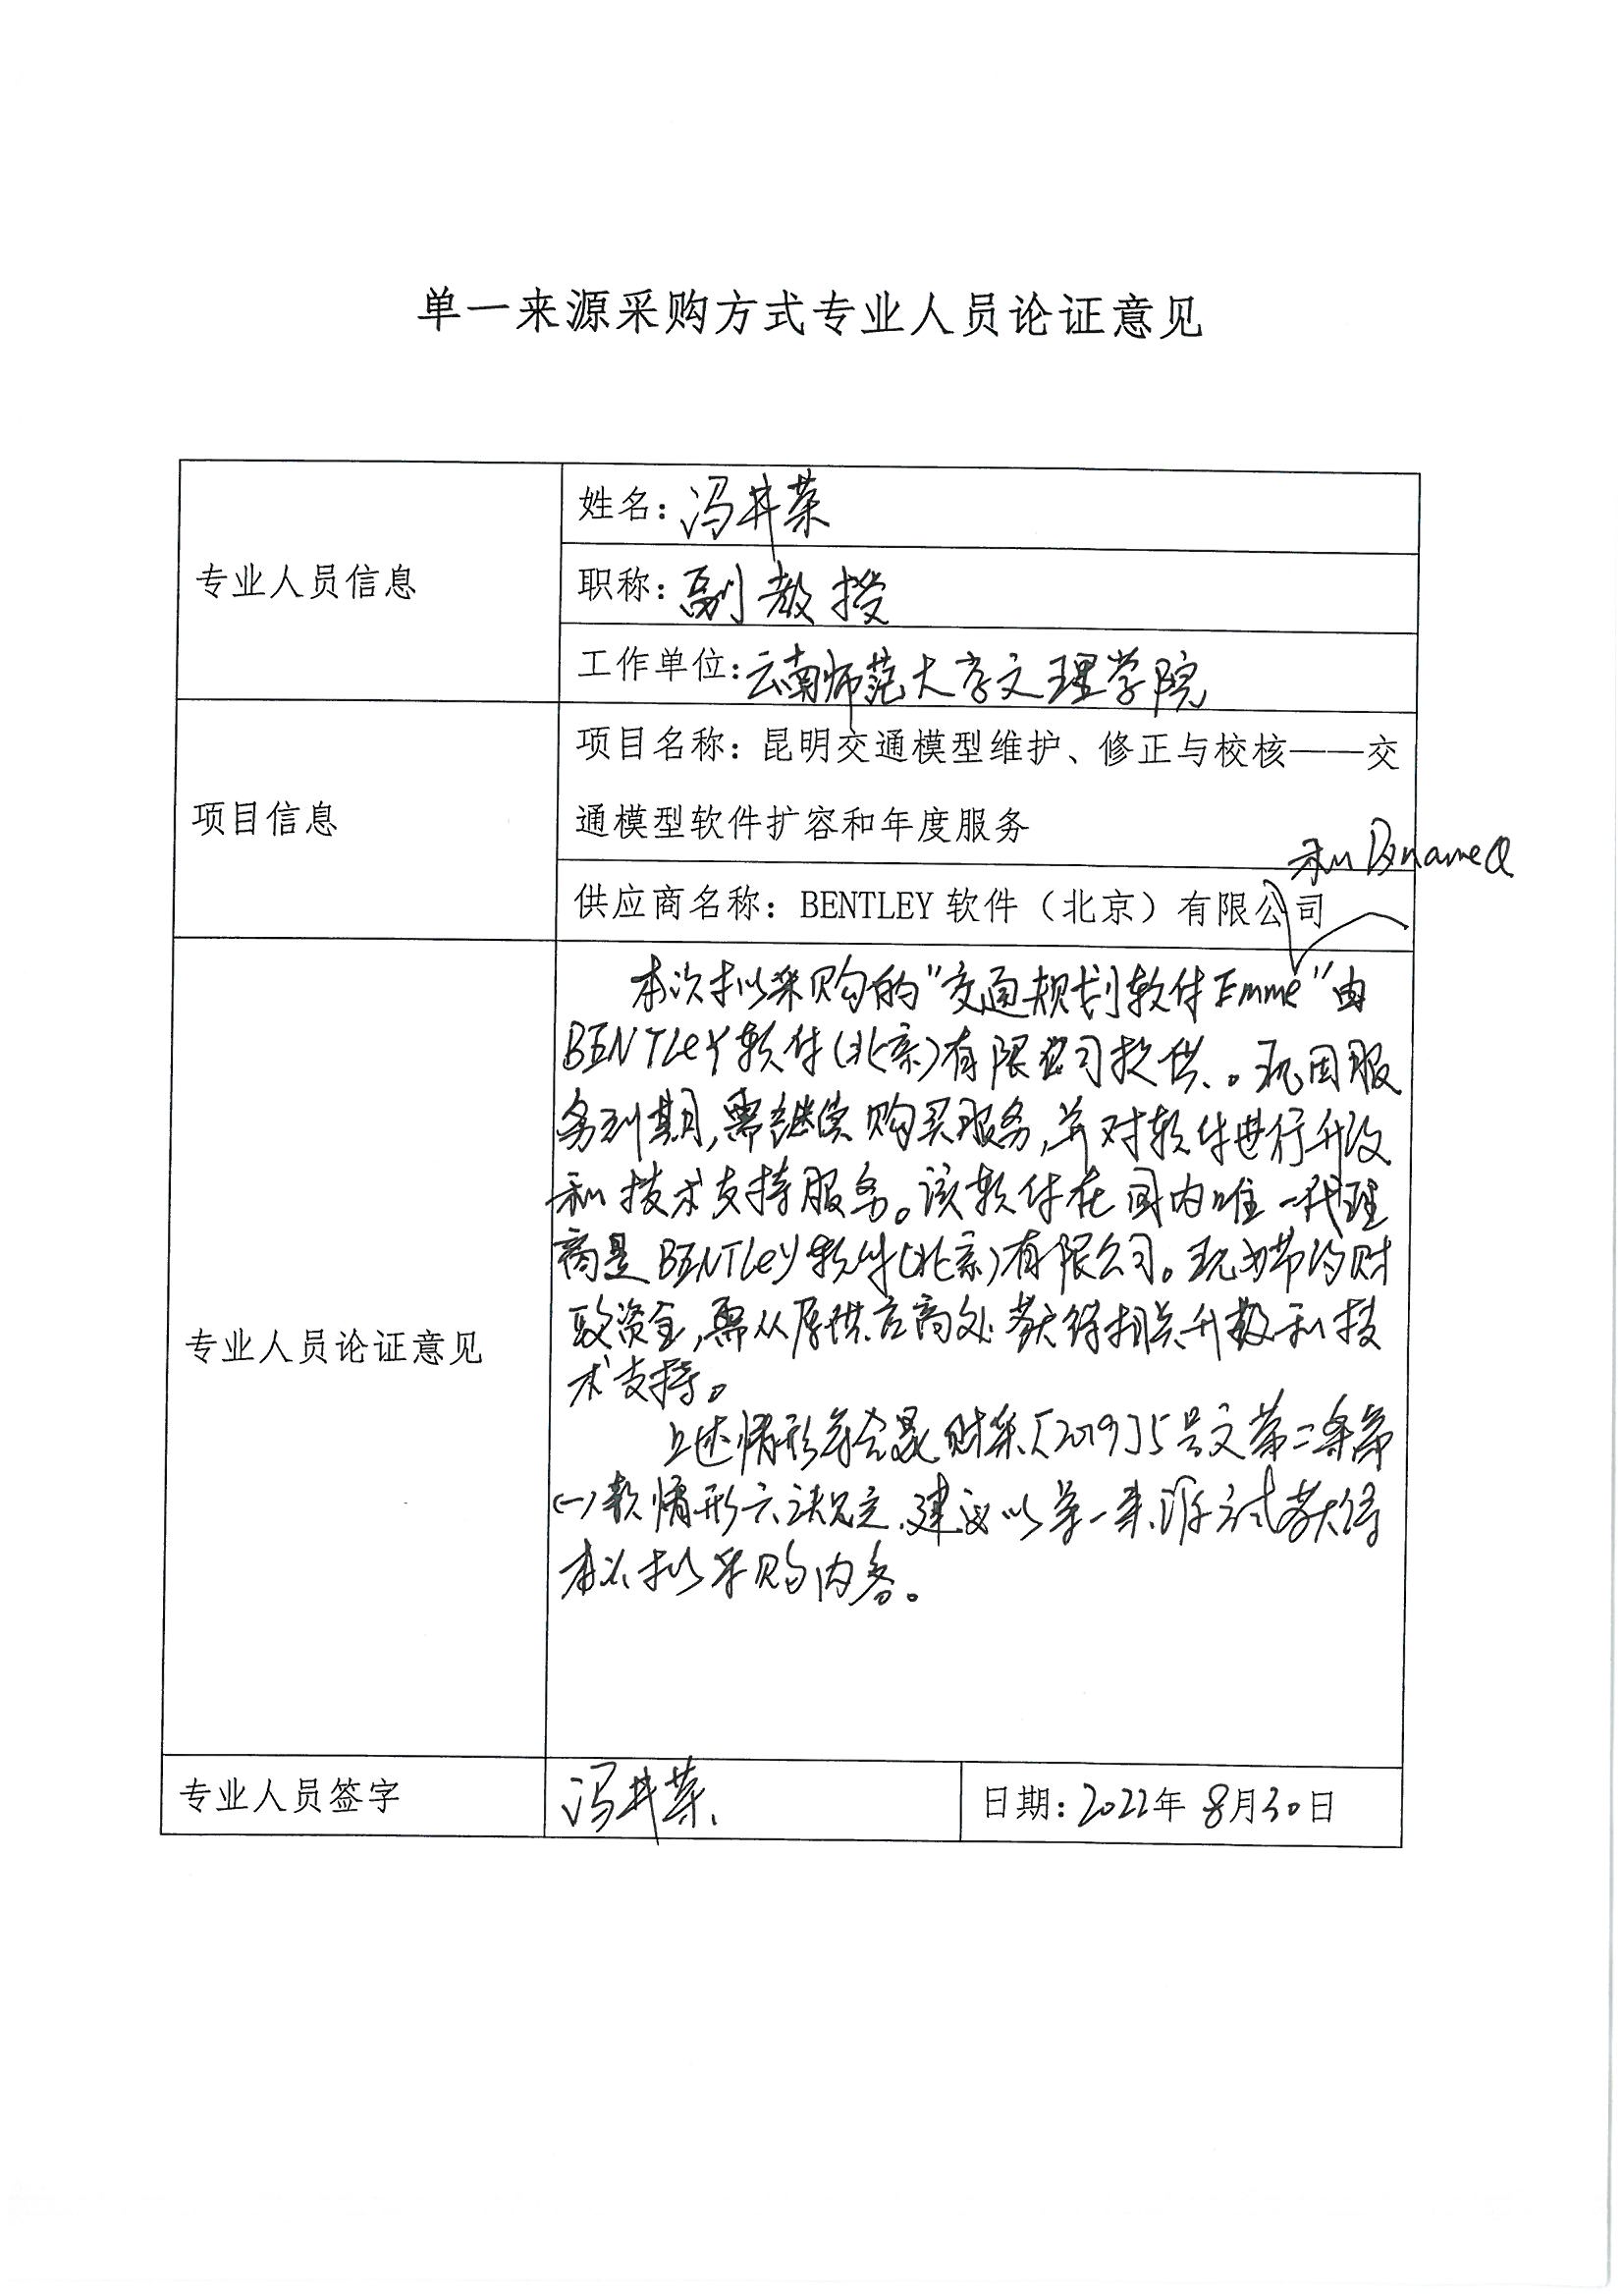 单一来源采购方式专业人员论证意见
专业人员信息
姓名：冯井荣
职称：副教授
工作单位：云南师范大学文理学院
项目信息
项目名称：昆明交通模型维护、修正与校核——交
通模型软件扩容和年度服务
供应商名称：BENTLEY 软件（北京）有限公司
和DynameQ
专业人员论证意见
本次拟采购的“交通规划软件Emme”由
BENTLeY软件(北京)有限公司提供。现因服
务到期,需继续购买服务,并对软件进行升级
和技术支持服务。该软件在国内唯一代理
商是BENTLeY软件(北京)有限公司。现为节约财
政资金,需从原供应商处获得相关升级和技
术支持。
上述情形符合昆财采〔2019〕5号文第二条第
(一)款情形六之规定,建议以单一来源方式获得
本次拟采购内容。
专业人员签字
冯井荣
日期：2022年8月30日